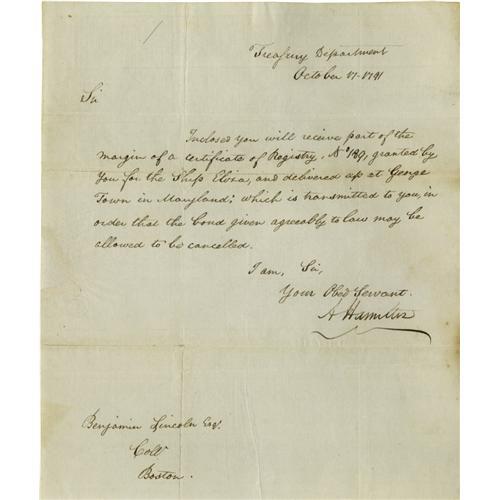 Treasury Department
October 17. 1791
Sir
Inclosed you will receive part of the
margin of a certificate of Registry, No. 180, granted by
You for the Ship Eliza, and delivered up at George
Town in Maryland; which is transmitted to you, in
order that the bond given agreeably to law may be
allowed to be cancelled.
I am, Sir,
Your Obed Servant.
A Hamilton
Benjamin Lincoln Esqr.
Collr
Boston.